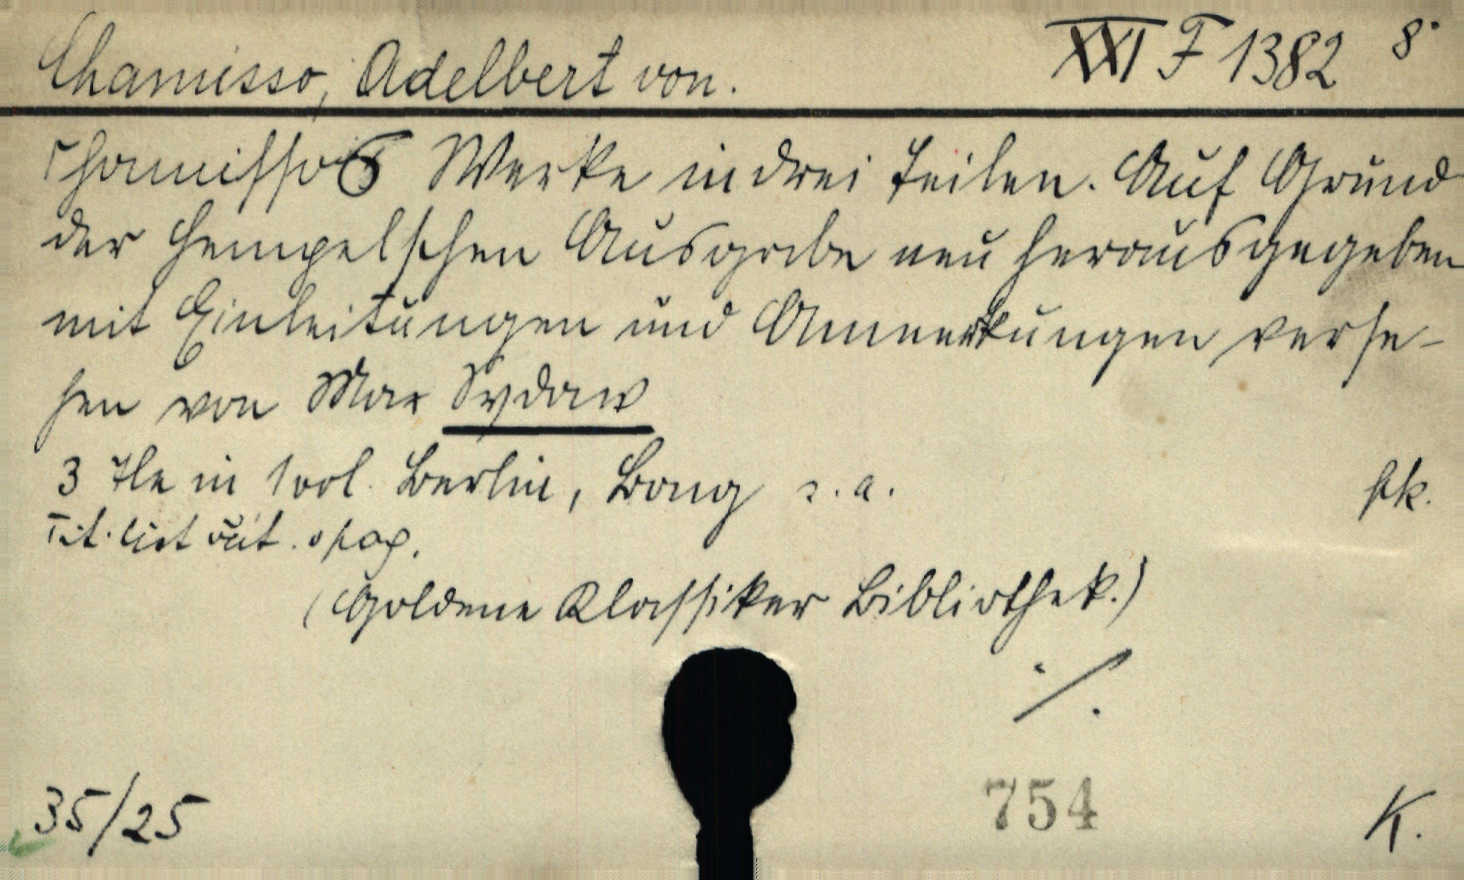 Chamisso, Adelbert von. XXI F 1382 8°
Chamissos Werke in drei Teilen. Auf Grund
der Hempelschen Ausgabe neu herausgegeben
mit Einleitungen und Anmerkungen verse-
hen von Max Sydow
3 Tle in 1 vol. Berlin, Bong s. a. Pk.
Tit. list
(Goldene Klassiker Bibliothek.)
./.
754
35/25 K.